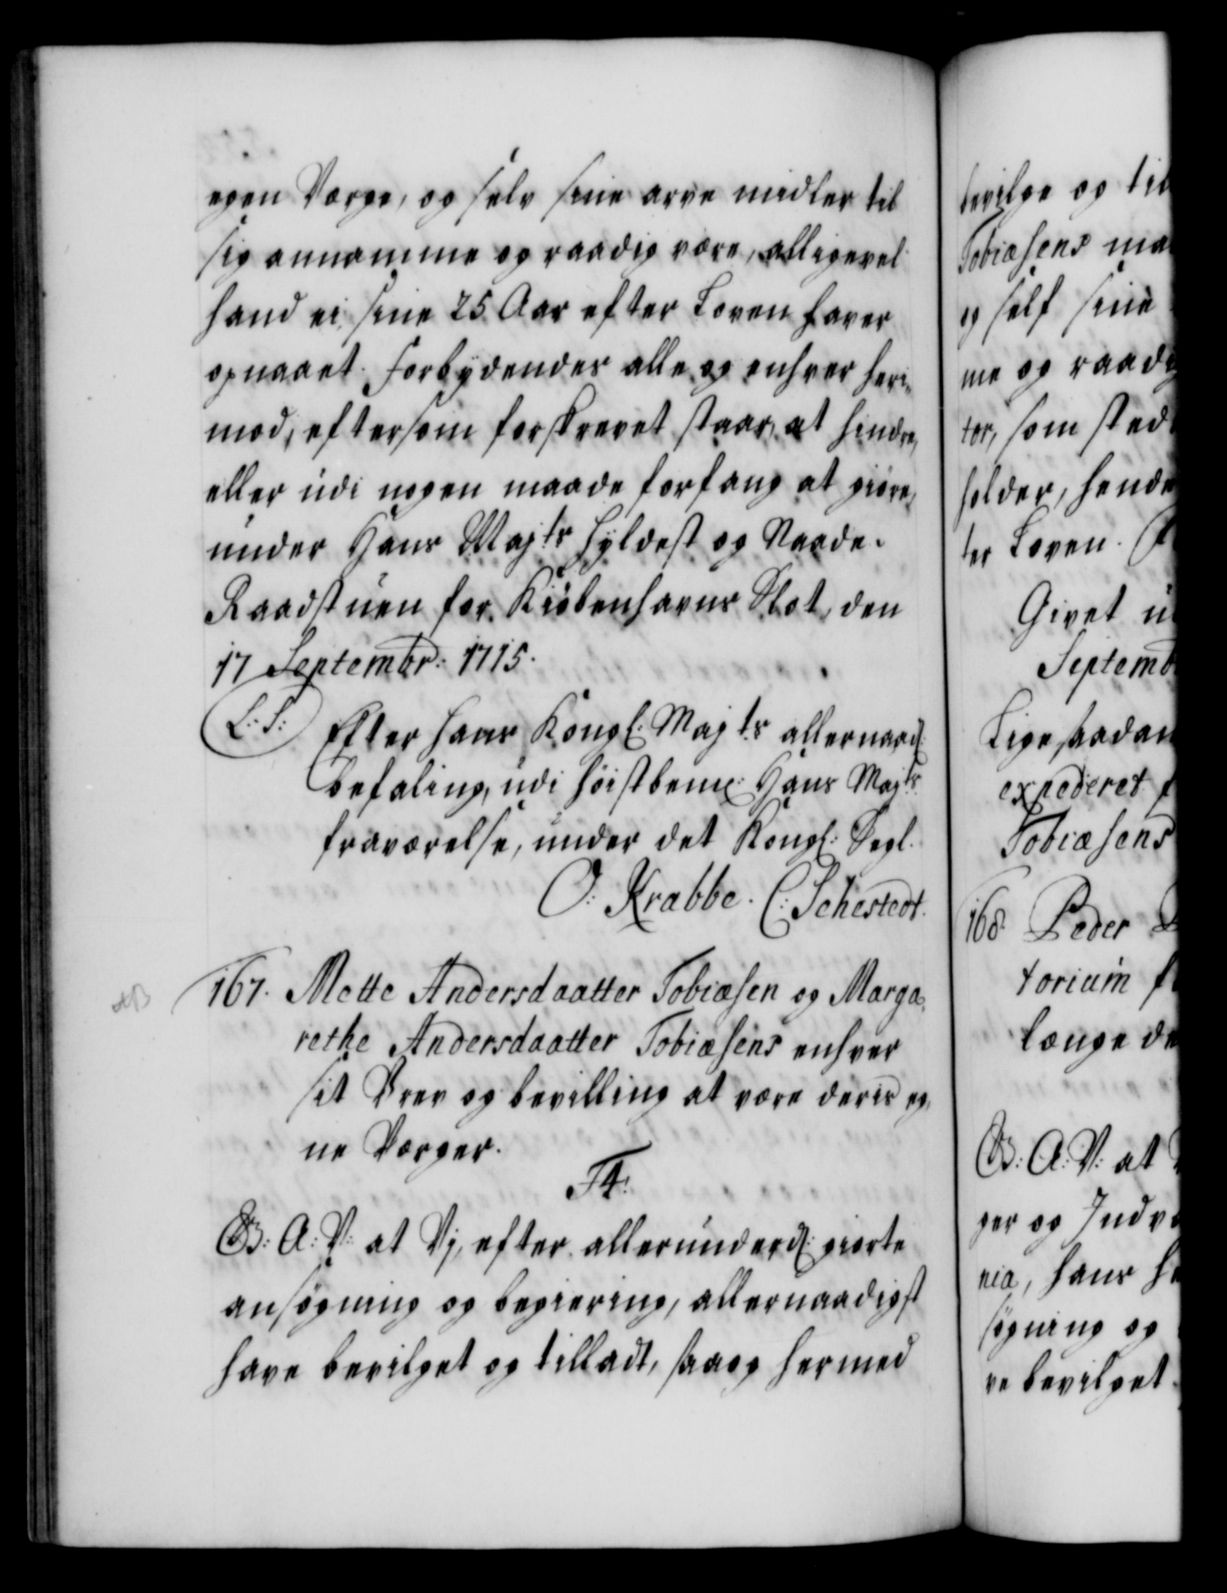 egen Værge, og selv sine arve midler til
sig annamme og raadig være, alligevel
hand ei sine 25 Aar efter Loven haver
opnaaet. Forbydendes alle og enhver heri-
mod, eftersom forskrevet staar, at hindre,
eller udi nogen maade forfang at giøre,
under Hans Majts Hyldest og Naade.
Raadstuen for Kiøbenhavns Slot, den
17 Septembr: 1715.
L: S: Efter hans Kongl: Majts allernaad:
befaling, udi høistbem: Hans Majts
fraværelse, under det Kongl: Segl.
O: Krabbe. C: Sehestedt.
167. Mette Andersdaatter Tobiæsen og Marga-
rethe Andersdaatter Tobiæsens enhver
sit Brev og bevilling at være deris eg-
ne Værger.
F4:
G: A: V: at Vj, efter allerunderd: giorte
ansøgning og begiering, allernaadigst
have bevilget og tilladt, saa og hermed
bevilge og til
Tobiæsens ma
og self sine
me og raadi
tor, som sted
holder, hende
ter Loven.
Givet u
Septemb
Lige saadan
expederet f
Tobiæsens
168. Peder
torium f
længe de
G: A: V: at
ger og Indv
nia, hans h
søgning og
ve bevilget